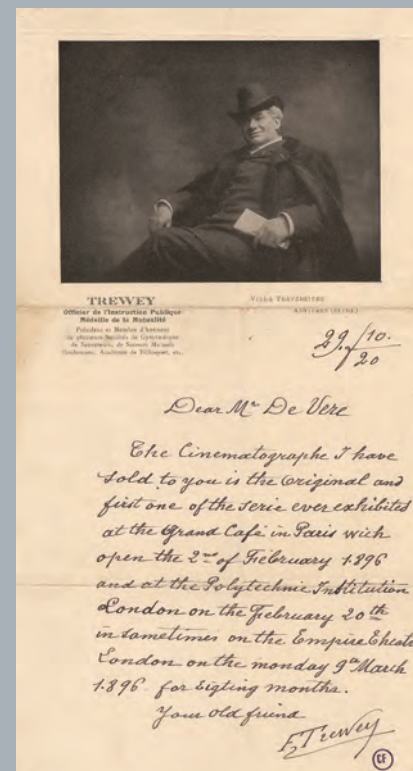 TREWEY
Officier de l'Instruction Publique
Médaille de la Mutualité
Président et Membre d'honneur
de plusieurs Sociétés de Gymnastique
de Sauveteurs, de Secours Mutuels
Académie de etc.,
VILLA TREWEY
ASNIÈRES (SEINE)
29/10.
20
Dear Mr De Vere
The Cinematographe I have
sold to you is the original and
first one of the serie ever exhibited
at the Grand Café in Paris wich
open the 2nd of February 1896
and at the Polytechnic Institution
London on the February 20th
in sametimes on the Empire Theatre
London on the monday 9th March
1.896 for eigting months.
Your old friend
F. Trewey
CF